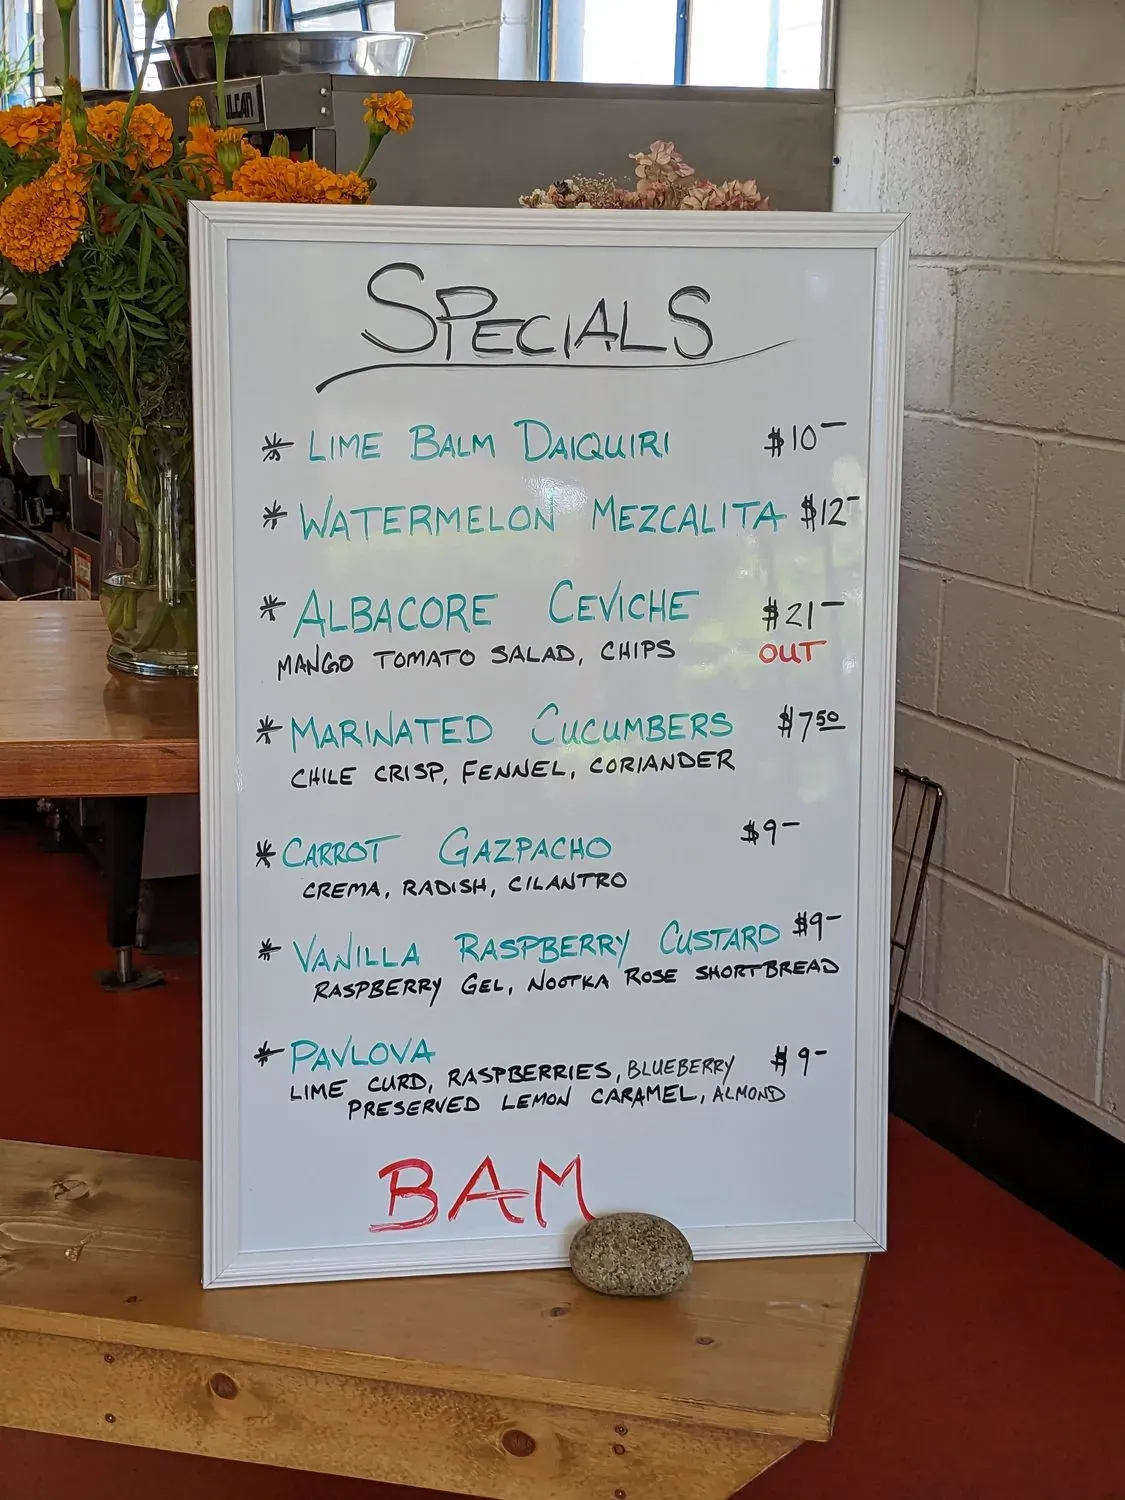 ULCAN
SPECIALS
* LIME BALM DAIQUIRI $10-
* WATERMELON MEZCALITA $12-
* ALBACORE CEVICHE $21-
MANGO TOMATO SALAD, CHIPS OUT
* MARINATED CUCUMBERS $750
CHILE CRISP, FENNEL, CORIANDER
* CARROT GAZPACHO $9-
CREMA, RADISH, CILANTRO
* VANILLA RASPBERRY CUSTARD $9-
RASPBERRY GEL, NOOTKA ROSE SHORTBREAD
* PAVLOVA $9-
LIME CURD, RASPBERRIES, BLUEBERRY
PRESERVED LEMON CARAMEL, ALMOND
BAM